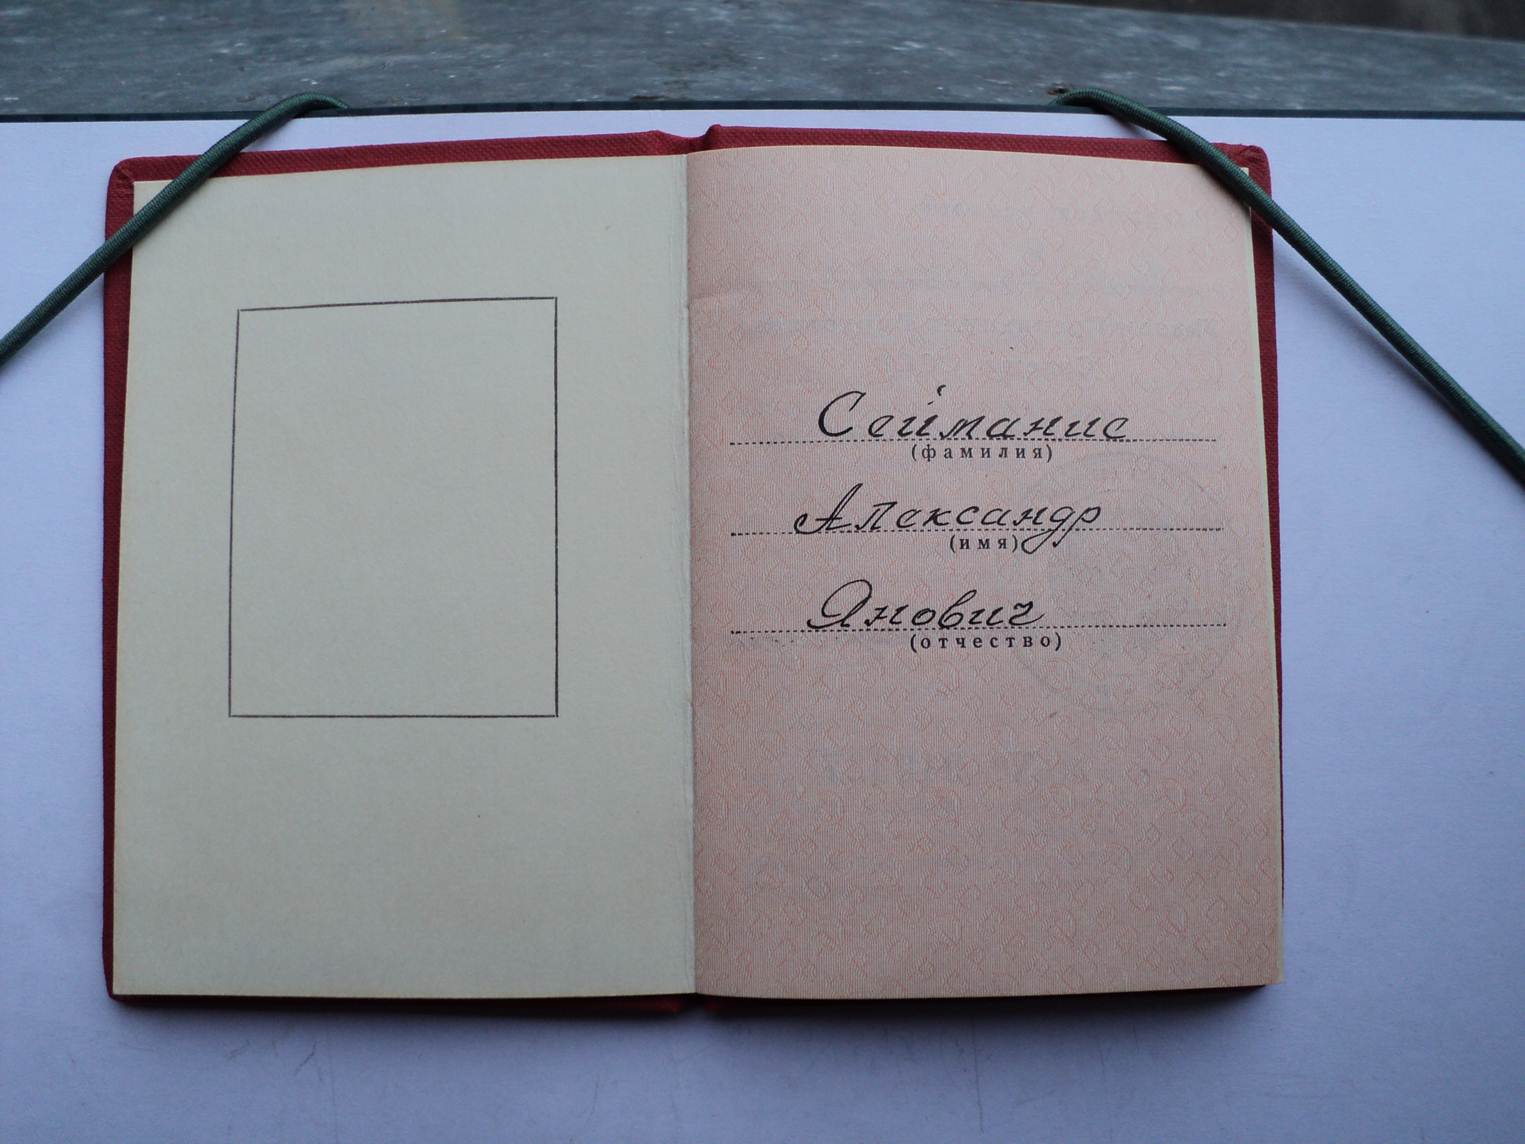 Сейманис
(фамилия)
Александр
(имя)
Янович
(отчество)